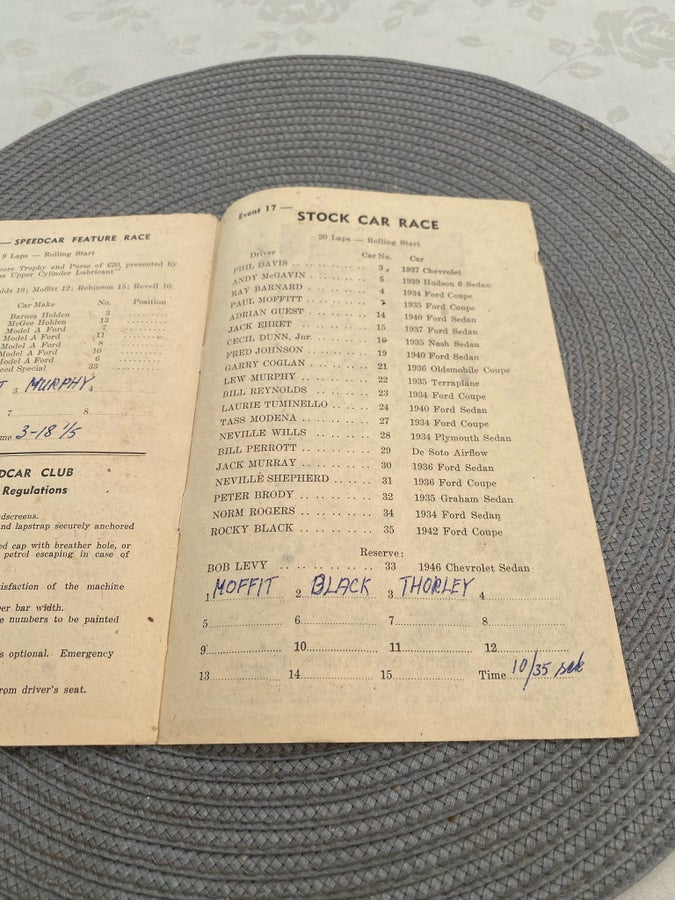 — SPEEDCAR FEATURE RACE
9 Laps — Rolling Start
Trophy and Purse of £20, presented by
Upper Cylinder Lubricant"
19; Moffitt 12; Robinson 15; Revell 10.
Car Make No. Position
Barnes Holden 3
McGee Holden 13
Model A Ford 7
Model A Ford 11
Model A Ford 8
Model A Ford 10
Model A Ford 6
Special 33
3 MURPHY 4
7 8
3-18 1/5
CAR CLUB
Regulations
lapstrap securely anchored
cap with breather hole, or
petrol escaping in case of
of the machine
bar width.
numbers to be painted
optional. Emergency
from driver's seat.
Event 17 —
STOCK CAR RACE
20 Laps — Rolling Start
Driver Car No. Car
PHIL DAVIS 3 1937 Chevrolet
ANDY McGAVIN 5 1939 Hudson 6 Sedan
RAY BARNARD 4 1934 Ford Coupe
PAUL MOFFITT 1935 Ford Coupe
ADRIAN GUEST 14 1940 Ford Sedan
JACK EHRET 15 1937 Ford Sedan
CECIL DUNN, Jnr. 1935 Nash Sedan
FRED JOHNSON 19 1940 Ford Sedan
GARRY COGLAN 21 1936 Oldsmobile Coupe
LEW MURPHY 22 1935 Terraplane
BILL REYNOLDS 23 1934 Ford Coupe
LAURIE TUMINELLO 24 1940 Ford Sedan
TASS MODENA 27 1934 Ford Coupe
NEVILLE WILLS 28 1934 Plymouth Sedan
BILL PERROTT 29 De Soto Airflow
JACK MURRAY 30 1936 Ford Sedan
NEVILLE SHEPHERD 31 1936 Ford Coupe
PETER BRODY 32 1935 Graham Sedan
NORM ROGERS 34 1934 Ford Sedan
ROCKY BLACK 35 1942 Ford Coupe
Reserve:
BOB LEVY 33 1946 Chevrolet Sedan
1 MOFFIT 2 BLACK 3 THORLEY 4
5 6 7 8
9 10 11 12
13 14 15 Time 10/35 sek